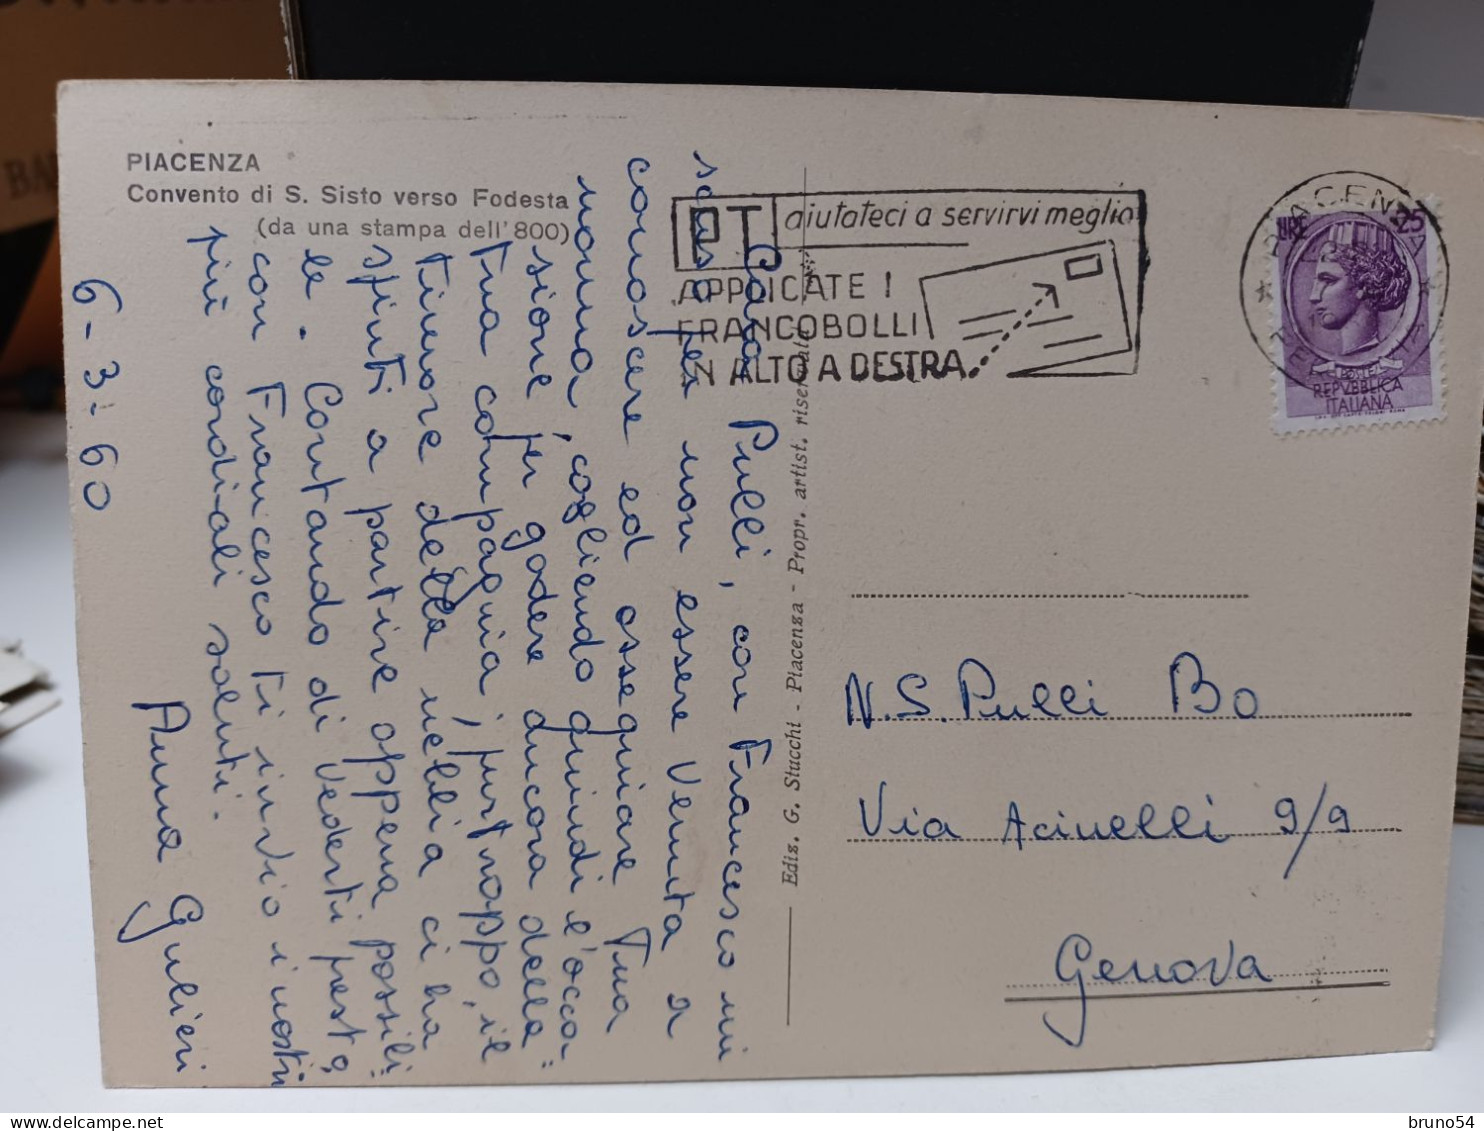 PIACENZA
Convento di S. Sisto verso Fodesta
(da una stampa dell'800)
PT aiutateci a servirvi meglio
APPLICATE I
FRANCOBOLLI
IN ALTO A DESTRA
PIACENZA
LIRE 25
POSTE
REPVBBLICA
ITALIANA
Cara Pulli, con Francesco mi
scuso per non essere venuta a
conoscere ed ossequiare Tua
nonna, cogliendo quindi l'occa-
sione per godere ancora della
Tua compagnia; purtroppo, il
timore della nebbia ci ha
spinti a partire appena possibi:
le. Contando di Vederti presto,
con Francesco ti invio i nostri
più cordiali saluti.
Anna Gulieri
6-3-60
Ediz. G. Stucchi - Piacenza - Propr. artist. riservata
N.S. Pulli Bo
Via Acinelli 9/9
Genova
BA
bruno54